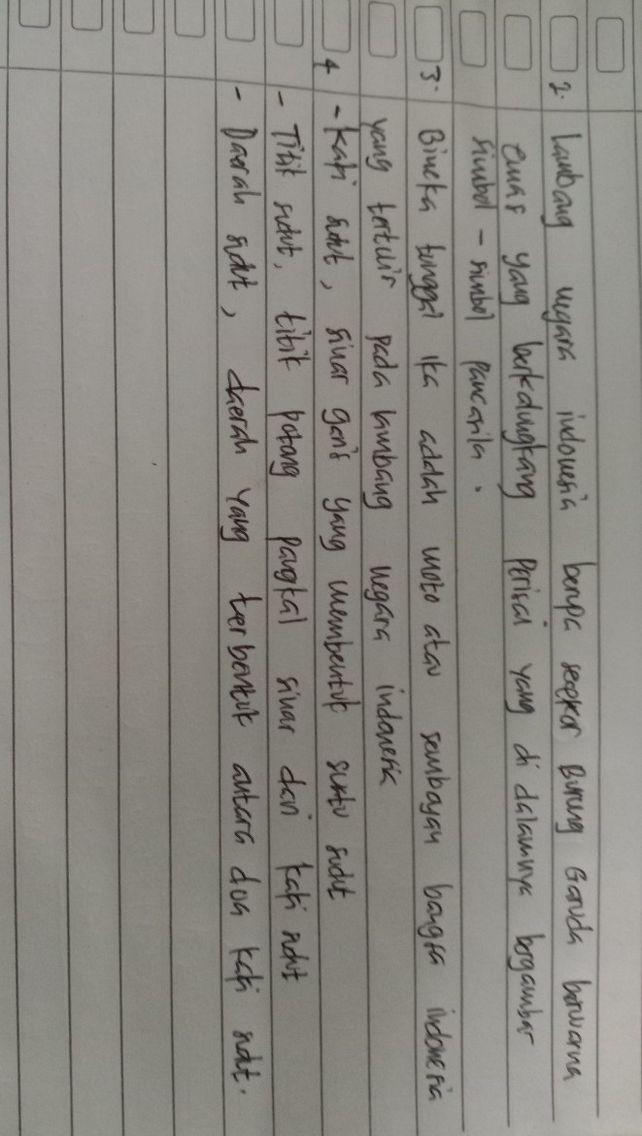 2. Lambang negara indonesia berupa seekor Burung Garuda berwarna
emas yang berkalungkang Perisai yang di dalamnya bergambar
simbol - simbol pancasila.
3. Bineka tunggal ika adalah moto atau semboyan bangsa indonesia
yang tertulis pada lambang negara indonesia
4 - Kaki sudut, sinar garis yang membentuk suatu sudut
- Titik sudut, titik potong pangkal sinar dari kaki sudut
- Daerah sudut, daerah yang terbentuk antara dua kaki sudut.